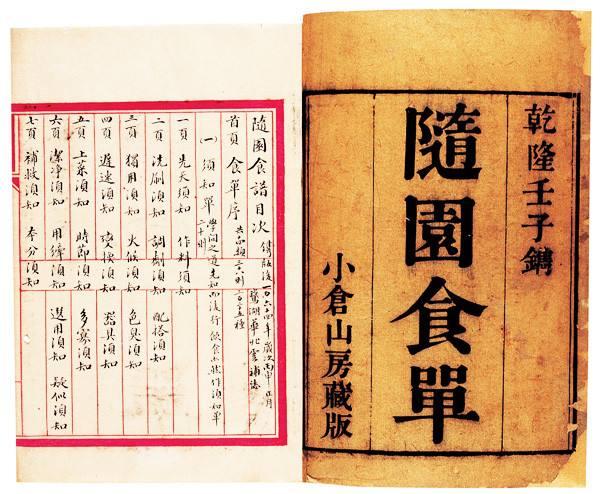 乾隆壬子鐫
隨園食單
小倉山房藏版
隨園食譜目次
首頁 食單序
(一) 須知單 學問之道先知而後行飲食亦然作須知單
二十則
一頁 先天須知 作料須知
二頁 洗刷須知 調劑須知 配搭須知
三頁 獨用須知 火候須知 色臭須知
四頁 遲速須知 變換須知 器具須知
五頁 上菜須知 時節須知 多寡須知
六頁 潔淨須知 用縴須知 選用須知 疑似須知
七頁 補救須知 本分須知